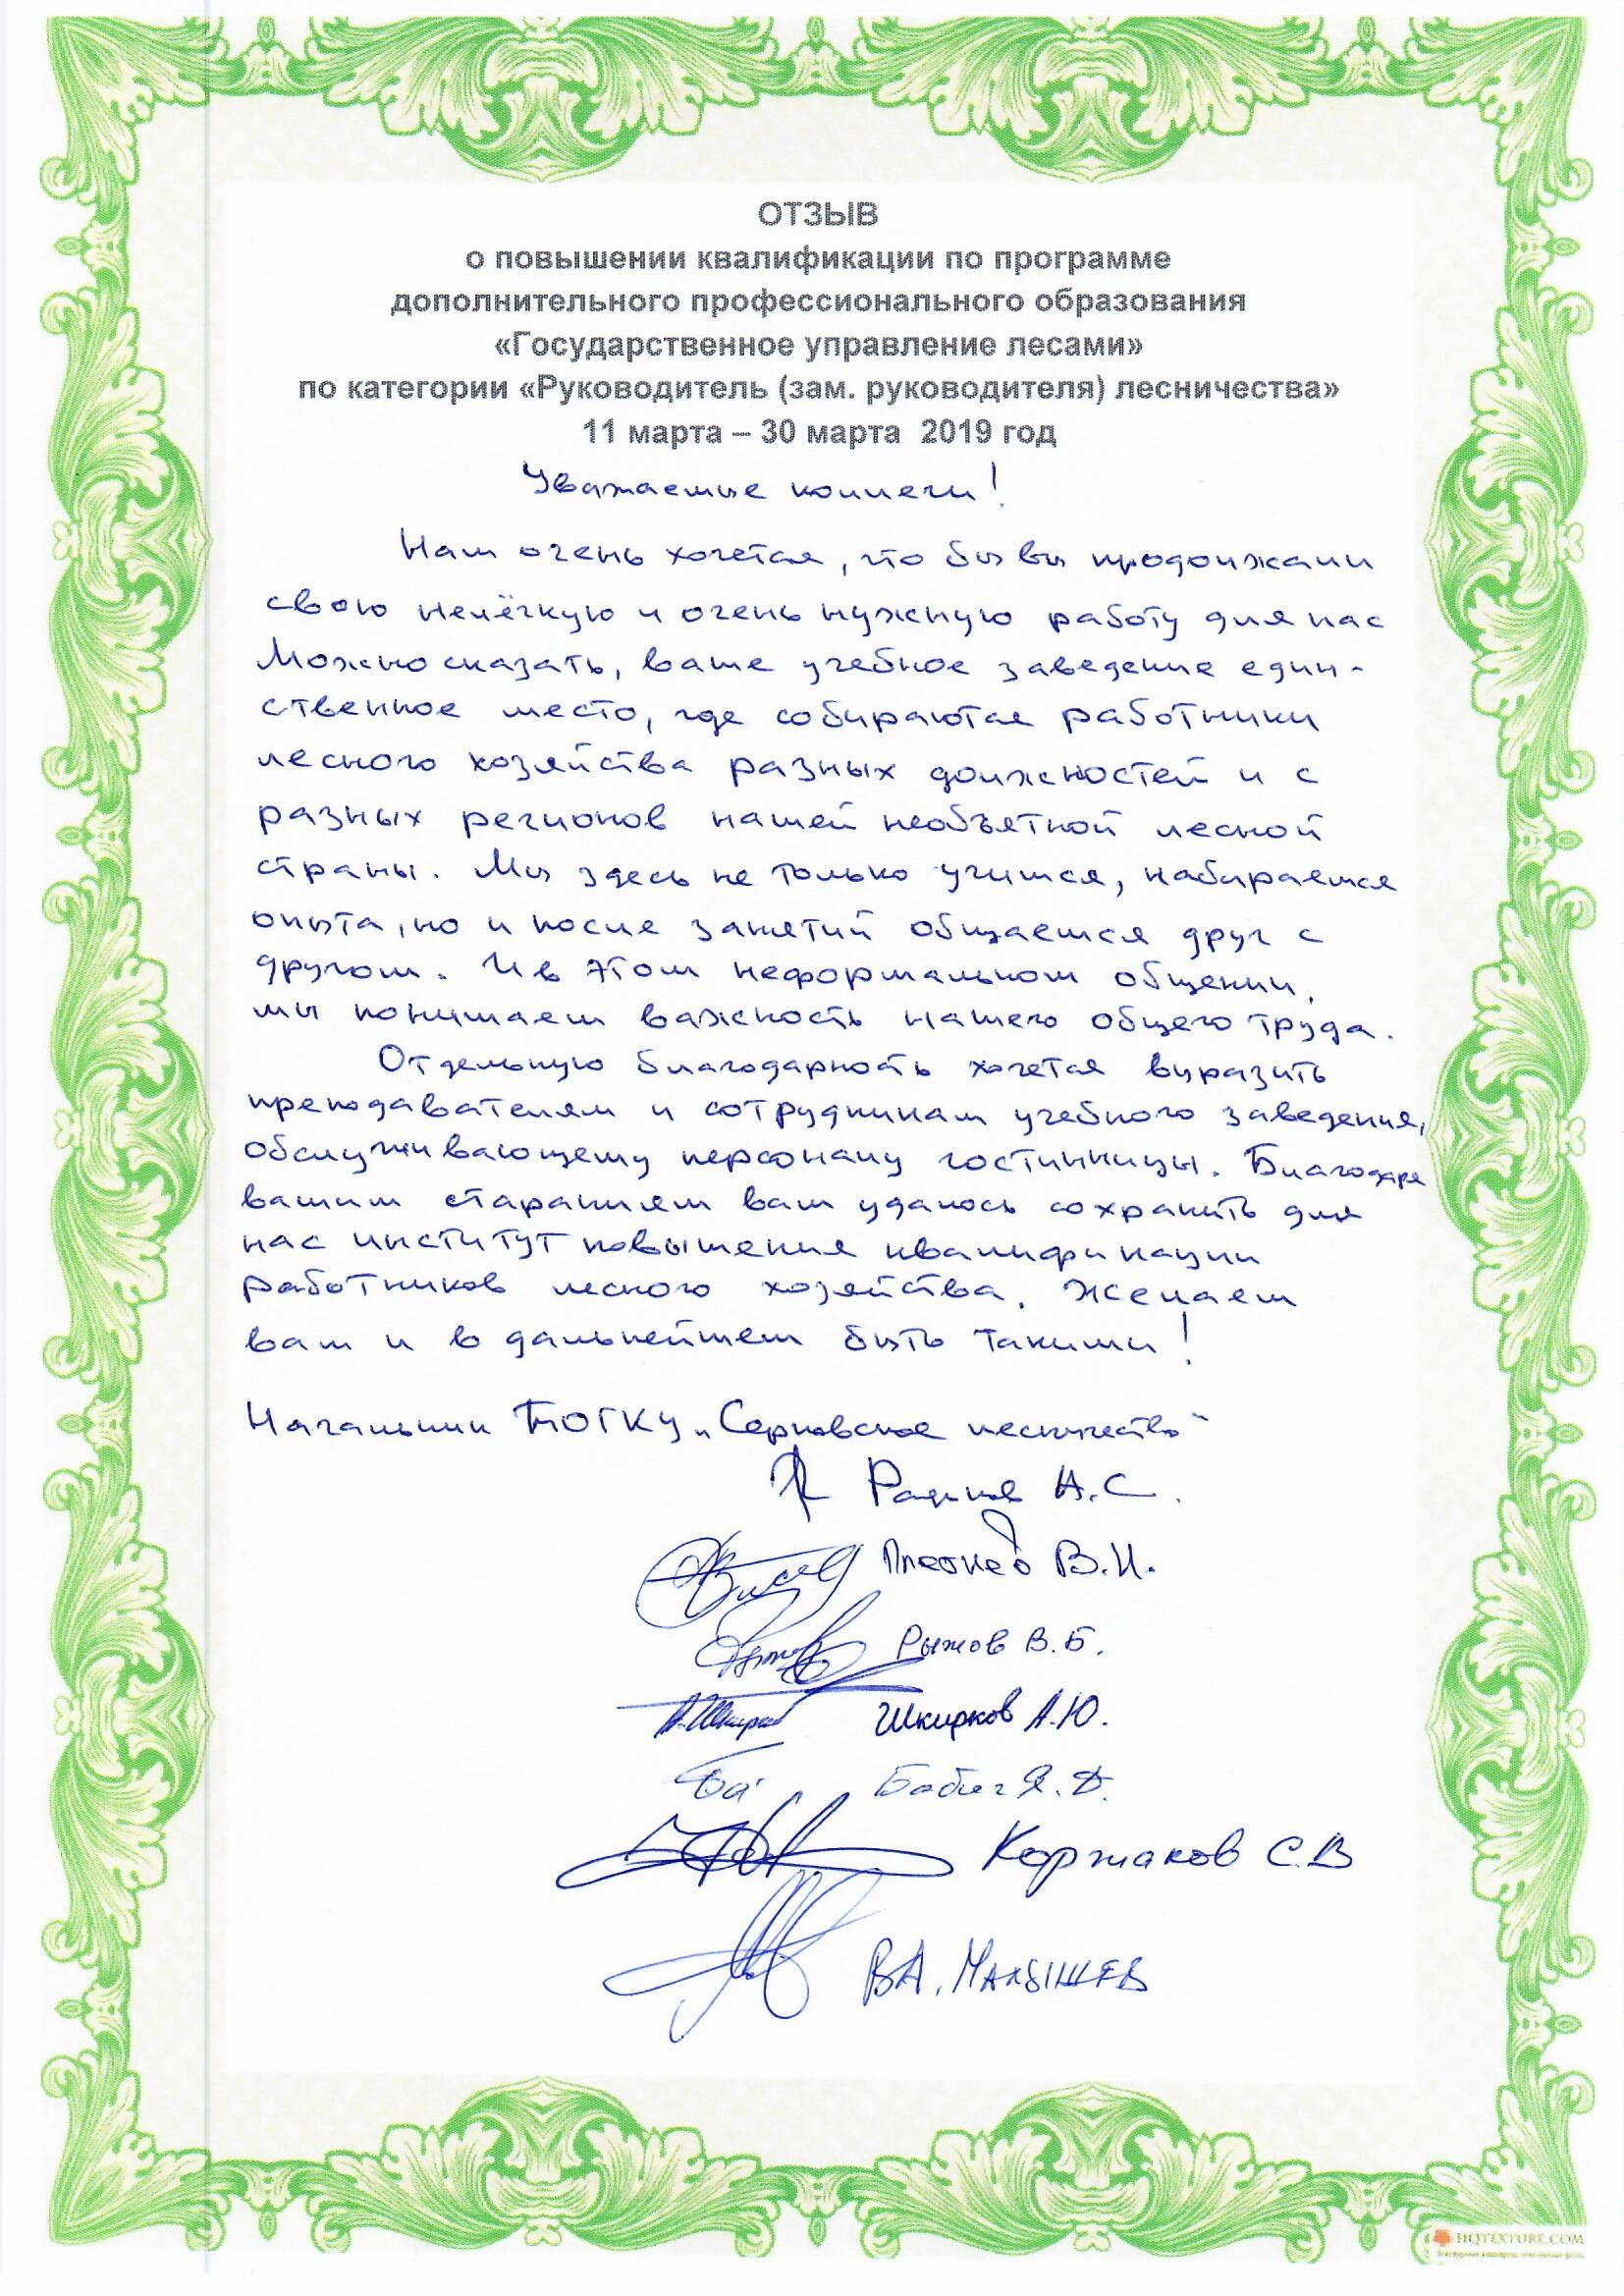 ОТЗЫВ
о повышении квалификации по программе
дополнительного профессионального образования
«Государственное управление лесами»
по категории «Руководитель (зам. руководителя) лесничества»
11 марта – 30 марта 2019 год
Уважаемые коллеги!
Нам очень хочется, что бы вы продолжали
свою нелёгкую и очень нужную работу для нас
Можно сказать, ваше учебное заведение един-
ственное место, где собираются работники
лесного хозяйства разных должностей и с
разных регионов нашей необъятной лесной
страны. Мы здесь не только учимся, набираемся
опыта, но и после занятий общаемся друг с
другом. И в этом неформальном общении,
мы понимаем важность нашего общего труда.
Отдельную благодарность хочется выразить
преподавателям и сотрудникам учебного заведения,
обслуживающему персоналу гостинницы. Благодаря
вашим стараниям вам удалось сохранить для
нас институт повышения квалификации
работников лесного хозяйства. Желаем
вам и в дальнейшем быть такими!
Начальник ТОГКУ „Серповское лесничество"
А.С.
В.И.
Рыжов В.Б.
Шкирков А.Ю.
Бабич Я.Д.
Коржаков С.В
В.А. Малышев
HQTEXTURE.COM